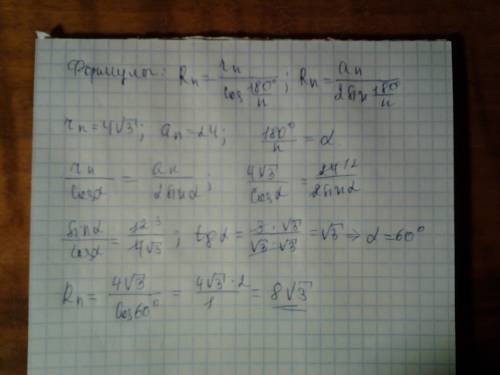 Формулы: Rₙ = rₙ / cos 180°/n ; Rₙ = aₙ / 2sin 180°/n
rₙ = 4√3 ; aₙ = 24 ; 180°/n = α
rₙ / cosα = aₙ / 2sinα ; 4√3 / cosα = 24 12 / 2sinα
sinα / cosα = 12 3 / 4√3 ; tgα = 3 · √3 / √3 · √3 = √3 ⇒ α = 60°
Rₙ = 4√3 / cos60° = 4√3 · 2 / 1 = 8√3